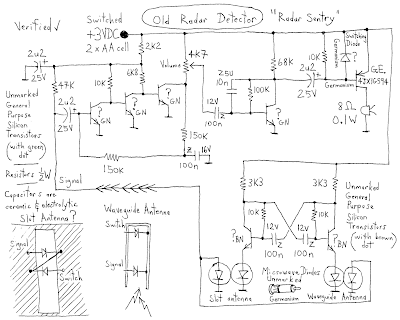 Old Radar Detector
"Radar Sentry"
Verified √
Switched
+3VDC
2 x AA cell
2u2
25V
47K
2u2
25V
10K
2K2
6K8
Volume
4K7
?
GN
?
GN
?
GN
25U
10N
12V
100n
68K
100K
?
GN
2u2
25V
10K
Switching
Diode
?
Germanium
Germanium
G.E.
8Ω
0.1W
Unmarked
General
Purpose
Silicon
Transistors
(with green
dot)
Resistors ½W
Capacitors are
ceramic & electrolytic
150K
150K
16V
100n
Signal
Slot Antenna?
Signal
Switch
Waveguide Antenna
Switch
Signal
3K3
3K3
10K
10K
12V
100n
12V
100n
?
BN
?
BN
Unmarked
General
Purpose
Silicon
Transistors
(with brown
dot)
Slot antenna
Microwave Diodes
Unmarked
Germanium
Waveguide Antenna